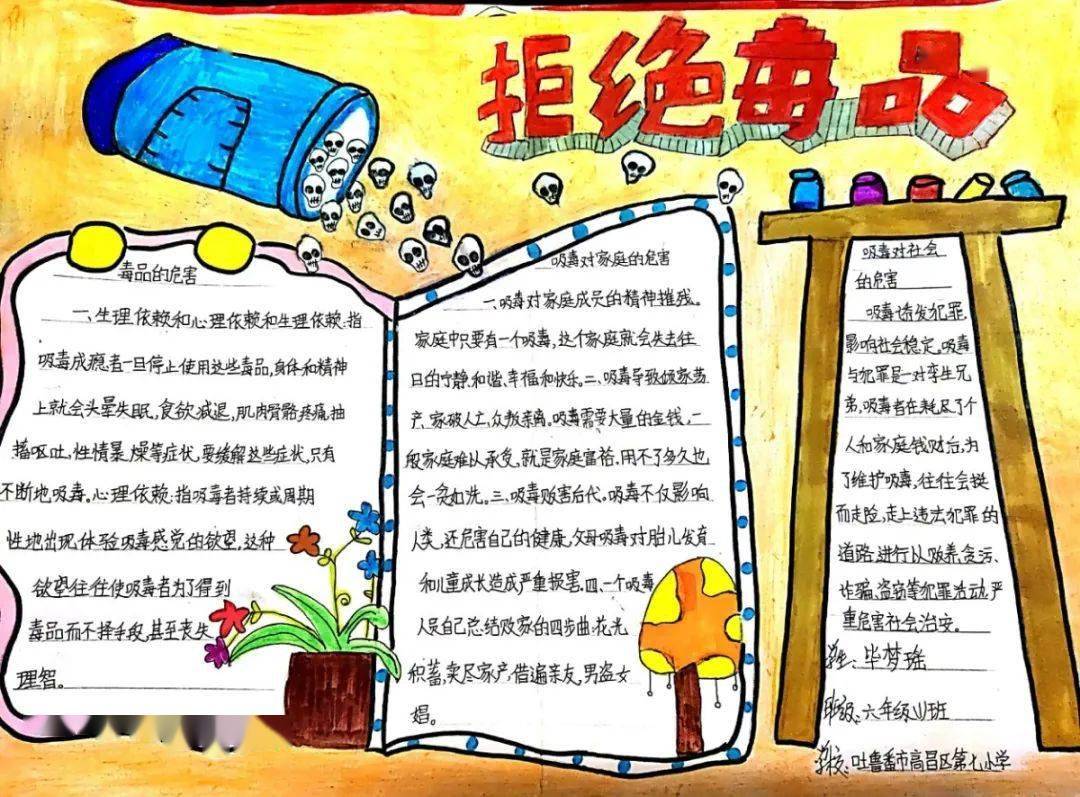 拒绝毒品
毒品的危害
一、生理依赖和心理依赖和生理依赖:指
吸毒成瘾者一旦停止使用这些毒品,身体和精神
上就会头晕失眠。食欲减退,肌肉骨骼疼痛,抽
搐呕吐,性情暴燥等症状,要缓解这些症状,只有
不断地吸毒。心理依赖:指吸毒者持续或周期
性地出现体验吸毒感觉的欲望,这种
欲望往往使吸毒者为了得到
毒品而不择手段,甚至丧失
理智。
吸毒对家庭的危害
一、吸毒对家庭成员的精神摧残。
家庭中只要有一个吸毒,这个家庭就会失去往
日的宁静、和谐、幸福和快乐。二、吸毒导致倾家荡
产、家破人亡,众叛亲离。吸毒需要大量的金钱,一
般家庭难以承受,就是家庭富裕,用不了多久也
会一贫如洗。三、吸毒贻害后代。吸毒不仅影响
人类,还危害自己的健康,父母吸毒对胎儿发育
和儿童成长造成严重损害。四、一个吸毒
人员自己总结败家的四步曲:花光
积蓄,卖尽家产,借遍亲友,男盗女
娼。
吸毒对社会
的危害
吸毒诱发犯罪,
影响社会稳定,吸毒
与犯罪是一对孪生兄
弟,吸毒者在耗尽了个
人和家庭钱财后,为
了维护吸毒,往往会铤
而走险,走上违法犯罪的
道路,进行以贩养贪污、
诈骗、盗窃等犯罪活动,严
重危害社会治安。
毕梦瑶
班级:六年级(1)班
学校:吐鲁番市高昌区第七小学